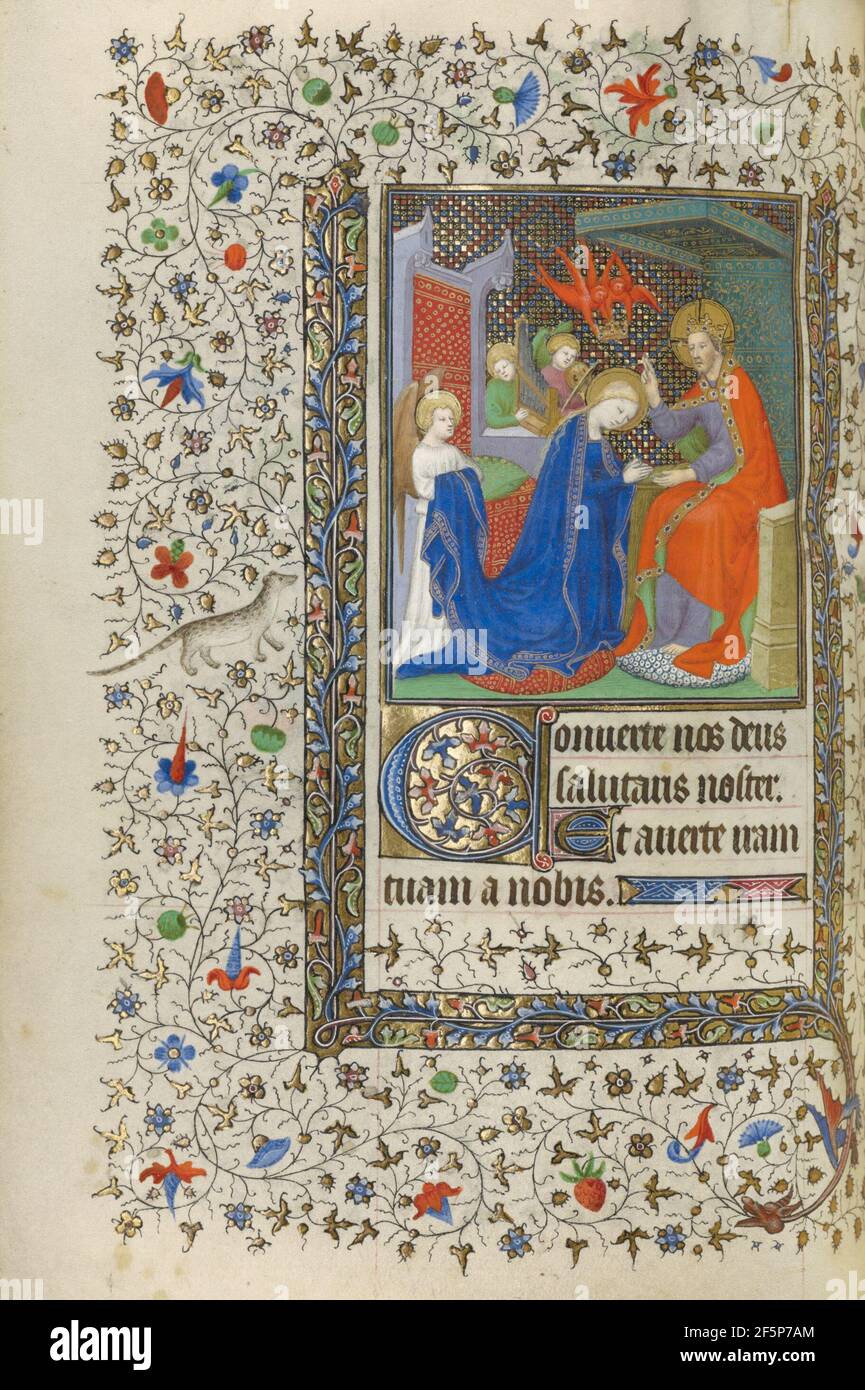 Conuerte nos deus
salutaris noster.
Et auerte iram
tuam a nobis.
alamy
alamy
Image ID: 2F5P7AM
www.alamy.com